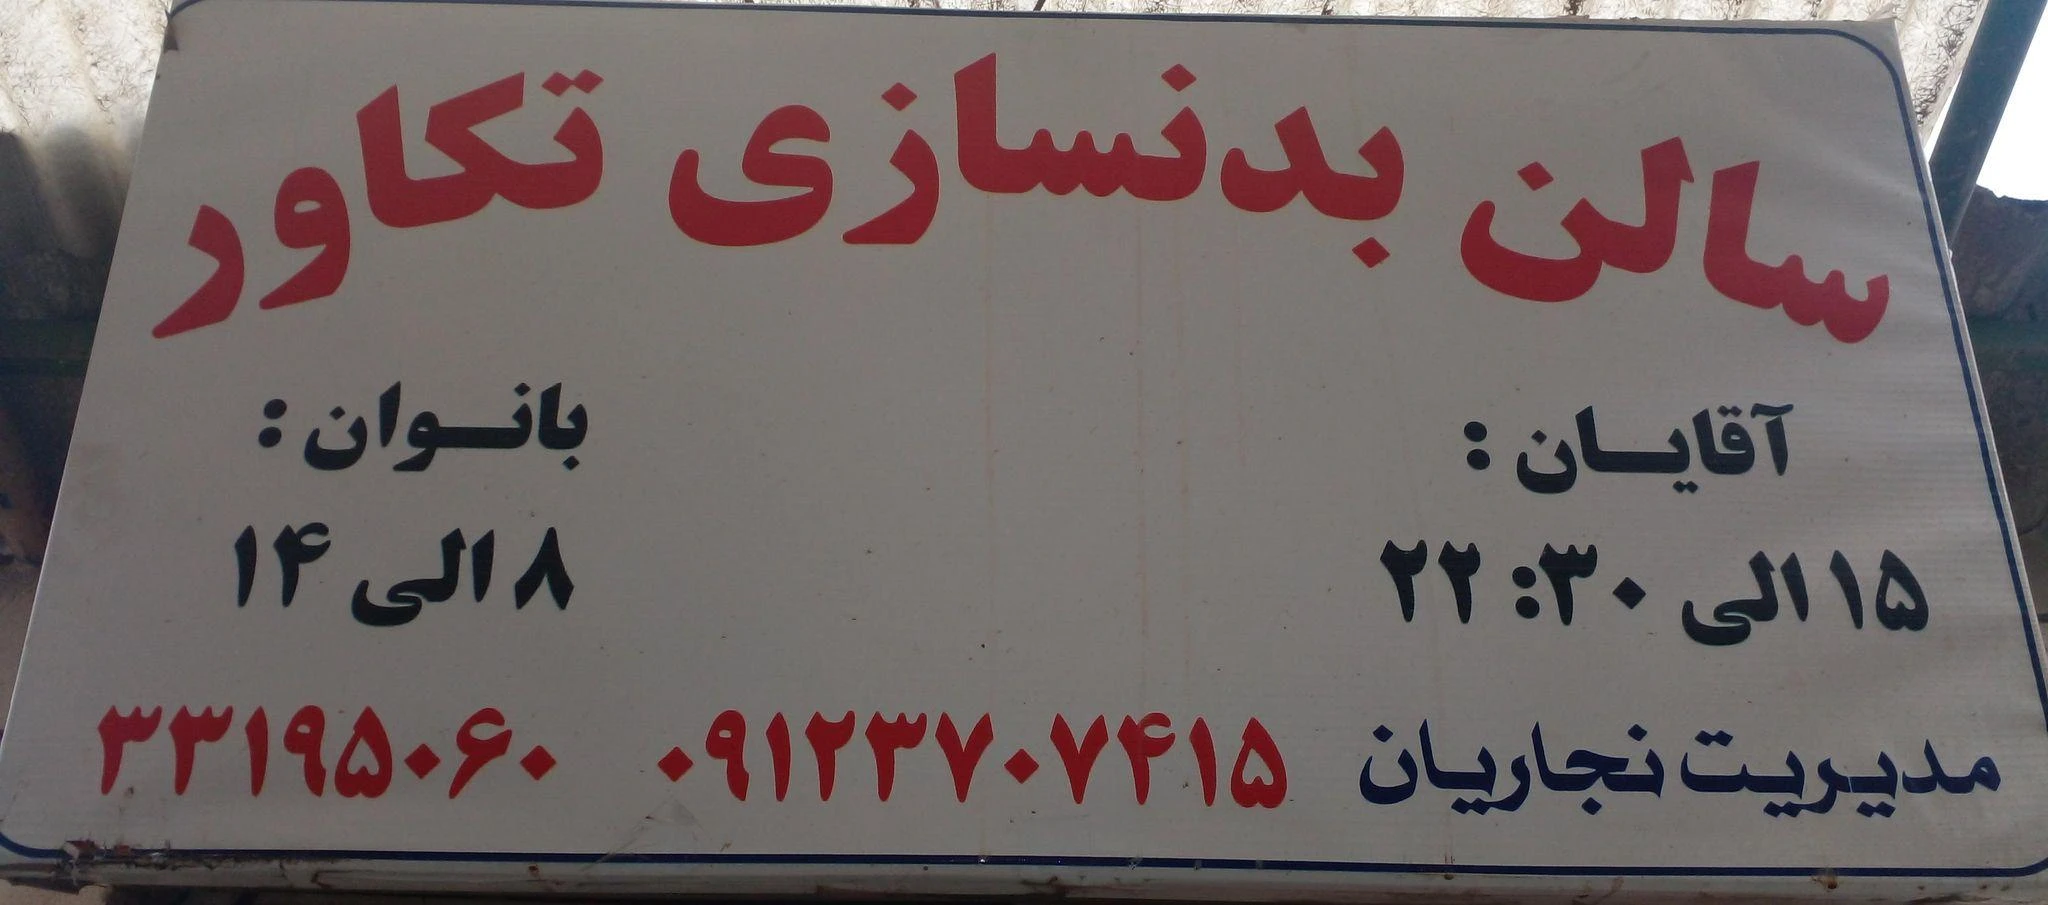 سالن بدنسازی تکاور
آقایان : بانوان :
۱۵ الی ۲۲:۳۰ ۸ الی ۱۴
مدیریت نجاریان ۰۹۱۲۳۷۰۷۴۱۵ ۳۳۱۹۵۰۶۰